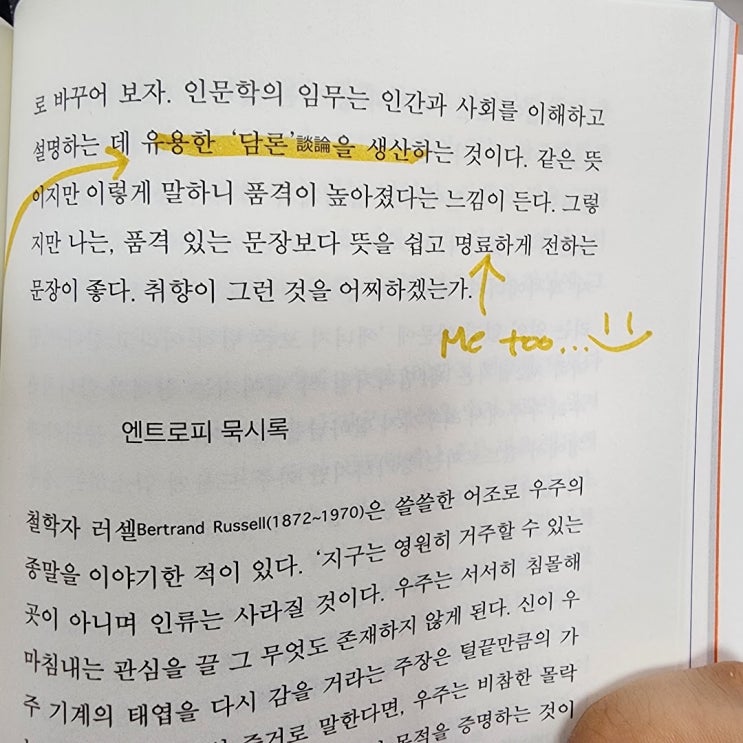 로 바꾸어 보자. 인문학의 임무는 인간과 사회를 이해하고
설명하는 데 유용한 ‘담론’談論을 생산하는 것이다. 같은 뜻
이지만 이렇게 말하니 품격이 높아졌다는 느낌이 든다. 그렇
지만 나는, 품격 있는 문장보다 뜻을 쉽고 명료하게 전하는
문장이 좋다. 취향이 그런 것을 어찌하겠는가.
Me too...
엔트로피 묵시록
철학자 러셀Bertrand Russell(1872~1970)은 쓸쓸한 어조로 우주의
종말을 이야기한 적이 있다. ‘지구는 영원히 거주할 수 있는
곳이 아니며 인류는 사라질 것이다. 우주는 서서히 침몰해
마침내는 관심을 끌 그 무엇도 존재하지 않게 된다. 신이 우
주 기계의 태엽을 다시 감을 거라는 주장은 털끝만큼의 가
증거로 말한다면, 우주는 비참한 몰락
목적을 증명하는 것이